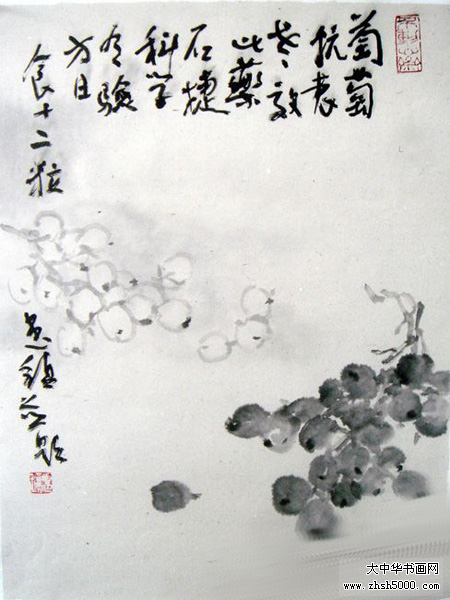 葡萄
抗衰
老效
比藥
石捷
科学
有驗
方日
食十二粒
並題
大中华书画网
www.zhsh5000.com